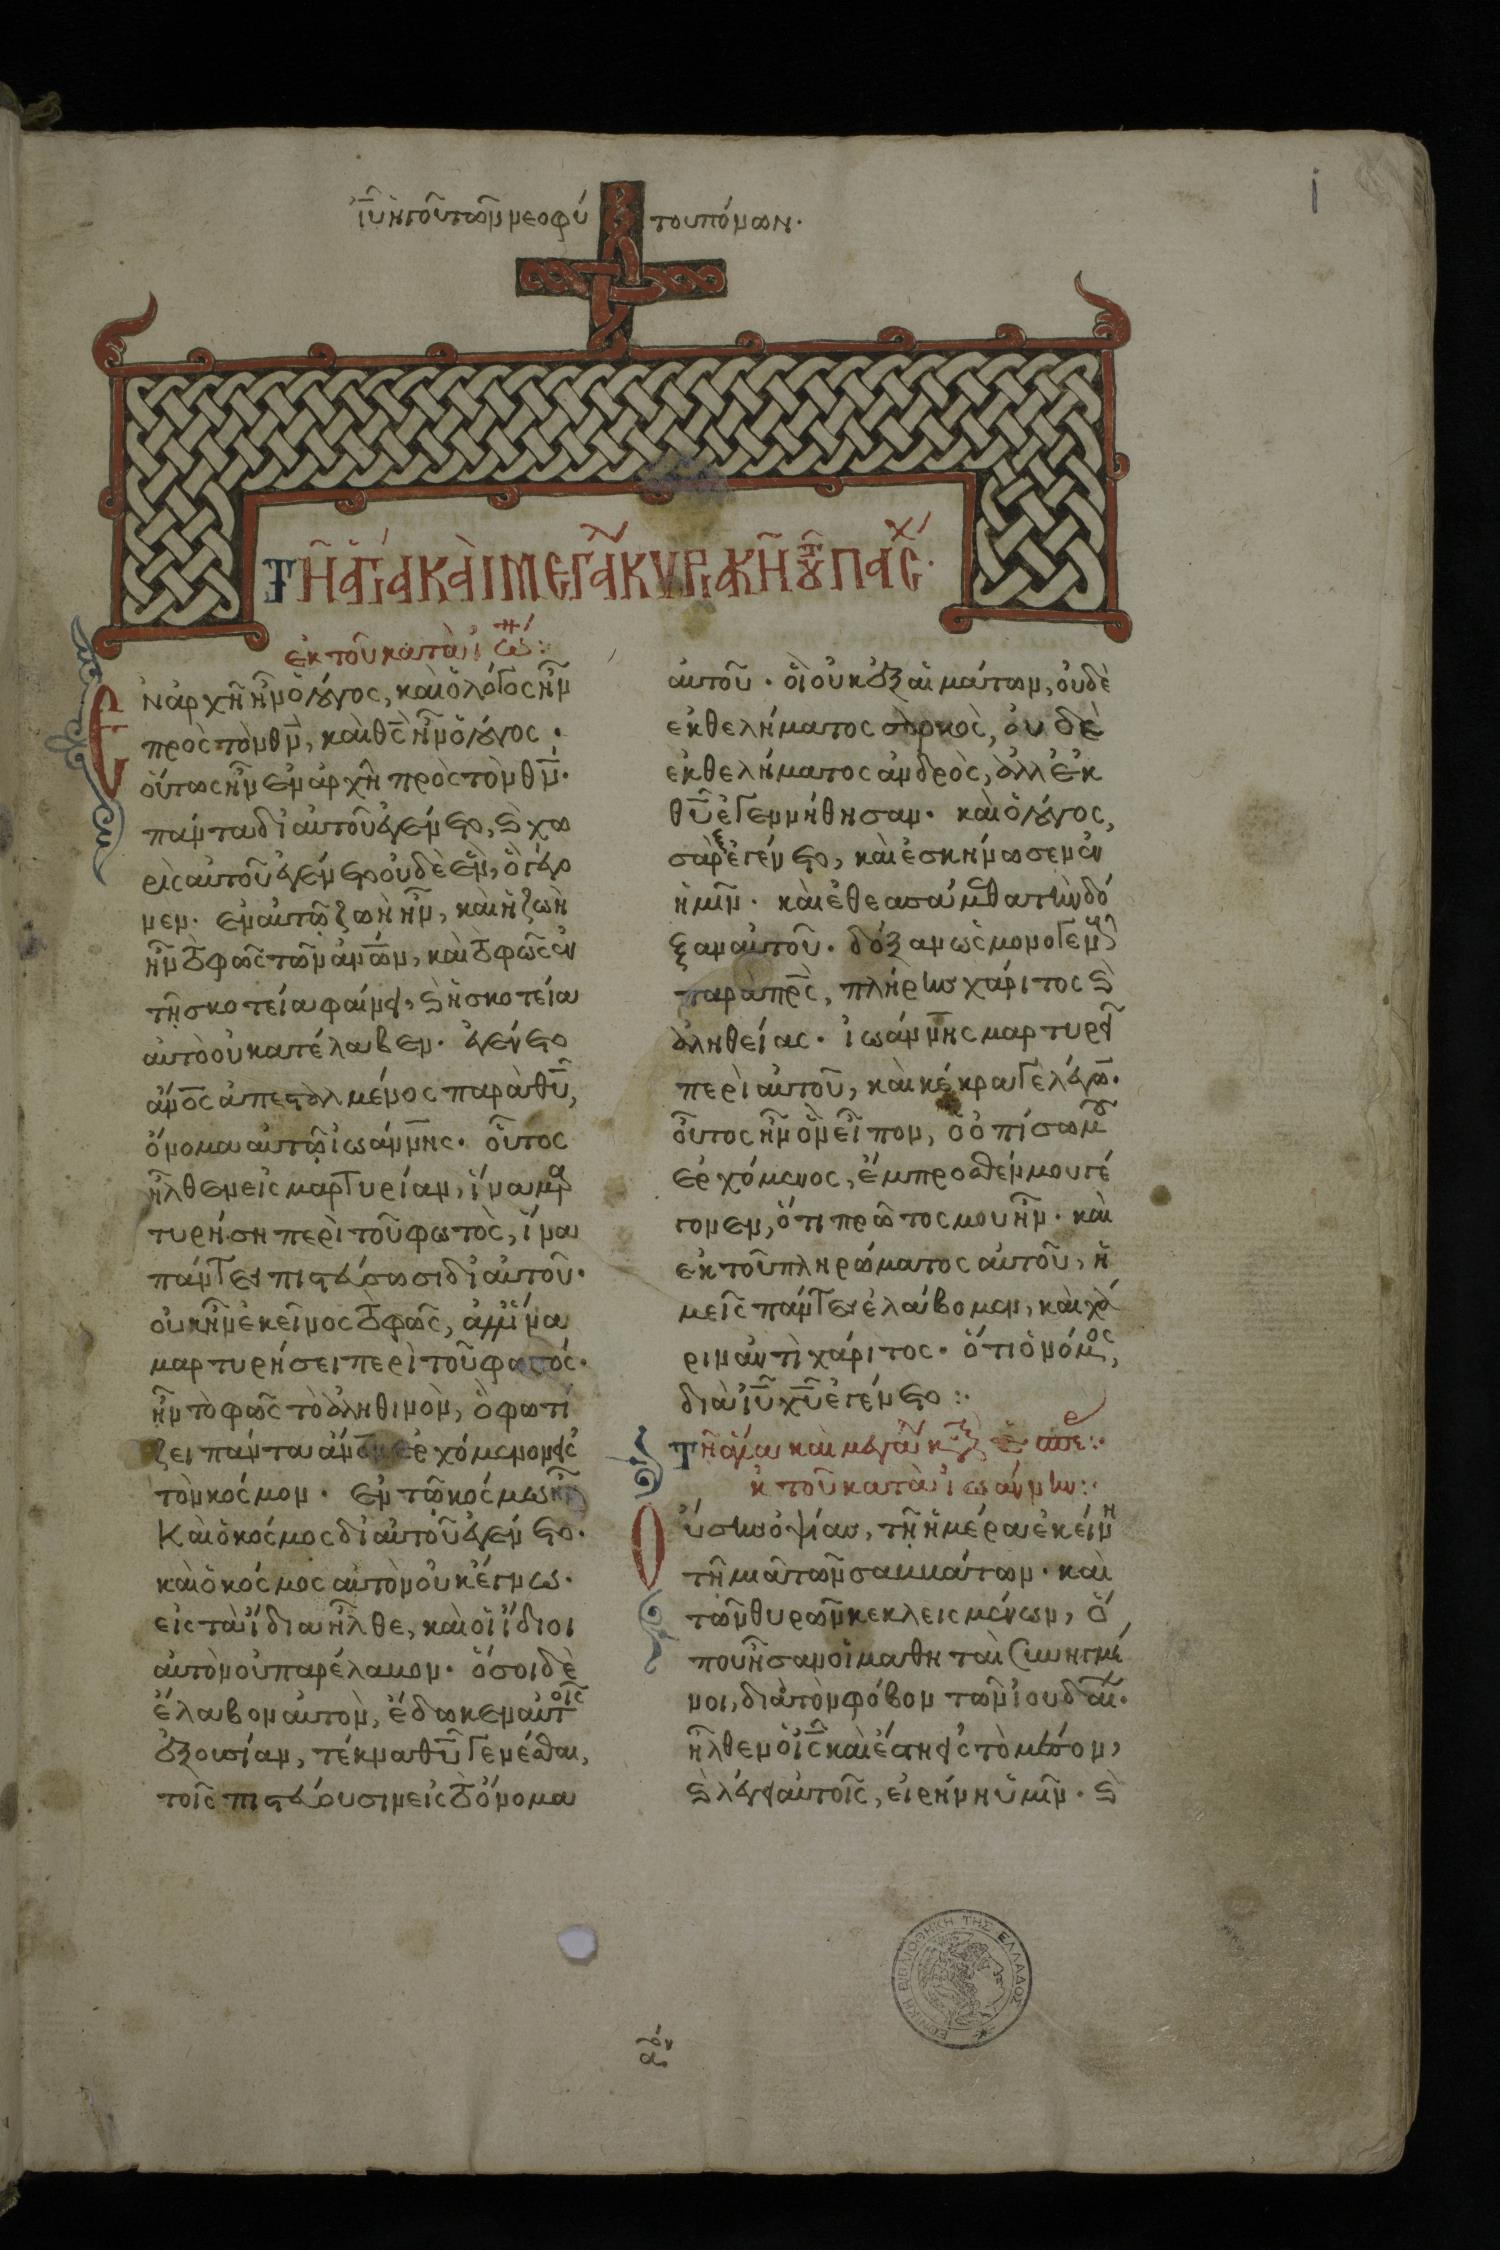 ἰῦ ἡγοῦ τῶν νεοφύ του πόνων·
Τῆ ἁγία καὶ μεγάλ κυριακῆ τοῦ πάσχ·
ἐκ τοῦ κατὰ ἰω:
Ἐν ἀρχῆ ἦν ὁ λόγος, καὶ ὁ λόγος ἦν
πρὸς τὸν θν, καὶ θς ἦν ὁ λόγος·
οὕτως ἦν ἐν ἀρχῆ πρὸς τὸν θν·
πάντα δι αὐτοῦ ἐγένετο, ϛ χω
ρὶς αὐτοῦ ἐγένετο οὐδὲ ἓν, ὃ γέγο
νεν· ἐν αὐτῶ ζωὴ ἦν, καὶ ἡ ζωὴ
ἦν τὸ φῶς τῶν ἀνων, καὶ τὸ φῶς ἐν
τῆ σκοτεία φαίνει, ϛ ἡ σκοτεία
αὐτὸ οὐ κατέλαβεν· ἐγένετο
ἄνος ἀπεσταλμένος παρὰ θυ,
ὄνομα αὐτῶ ἰωάννης· οὗτος
ἦλθεν εἰς μαρτυρίαν, ἵνα μαρ
τυρήση περὶ τοῦ φωτὸς, ἵνα
πάντες πιστεύσωσι δι αὐτοῦ·
οὐκ ἦν ἐκεῖνος τὸ φῶς, ἀλλ ἵνα
μαρτυρήσει περὶ τοῦ φωτός·
ἦν τὸ φῶς τὸ ἀληθινὸν, ὃ φωτί
ζει πάντα ἄνον ἐρχόμενον εἰς
τὸν κόσμον· ἐν τῶ κόσμω ἦν
Καὶ ὁ κόσμος δι αὐτοῦ ἐγένετο·
καὶ ὁ κόσμος αὐτὸν οὐκ ἔγνω·
εἰς τὰ ἴδια ἦλθε, καὶ οἱ ἴδιοι
αὐτὸν οὐ παρέλαβον· ὅσοι δὲ
ἔλαβον αὐτὸν, ἔδωκεν αὐτοῖς
ἐξουσίαν, τέκνα θυ γενέσθαι,
τοῖς πιστεύουσιν εἰς τὸ ὄνομα
αὐτοῦ· οἳ οὐκ ἐξ αἱμάτων, οὐδὲ
ἐκ θελήματος σαρκὸς, οὐδὲ
ἐκ θελήματος ἀνδρὸς, ἀλλ ἐκ
θυ ἐγεννήθησαν· καὶ ὁ λόγος,
σὰρξ ἐγένετο, καὶ ἐσκήνωσεν ἐν
ἡμῖν· καὶ ἐθεασάμεθα τὴν δό
ξαν αὐτοῦ· δόξαν ὡς μονογενοῦς
παρὰ πρς, πλήρης χάριτος ϛ
ἀληθείας· ἰωάννης μαρτυρεῖ
περὶ αὐτοῦ, καὶ κέκραγε λέγων·
οὗτος ἦν ὃν εἶπον, ὁ ὀπίσω μου
ἐρχόμενος, ἔμπροσθέν μου γέ
γονεν, ὅτι πρῶτός μου ἦν· καὶ
ἐκ τοῦ πληρώματος αὐτοῦ, ἡ
μεῖς πάντες ἐλάβομεν, καὶ χά
ριν ἀντὶ χάριτος· ὅτι ὁ νόμος,
διὰ ἰυ χυ ἐγένετο:·
Τῆ ἁγία καὶ μεγάλ
ἐκ τοῦ κατὰ ἰωάννην:·
Οὔσης ὀψίας, τῆ ἡμέρα ἐκείνη
τῆ μιᾶ τῶν σαββάτων· καὶ
τῶν θυρῶν κεκλεισμένων, ὅ
που ἦσαν οἱ μαθηταὶ συνηγμέ
νοι, διὰ τὸν φόβον τῶν ἰουδαίων·
ἦλθεν ὁ ις καὶ ἔστη εἰς τὸ μέσον,
ϛ λέγει αὐτοῖς, εἰρήνη ὑμῖν· ϛ
ΕΘΝΙΚΗ ΒΙΒΛΙΟΘΗΚΗ ΤΗΣ ΕΛΛΑΔΟΣ